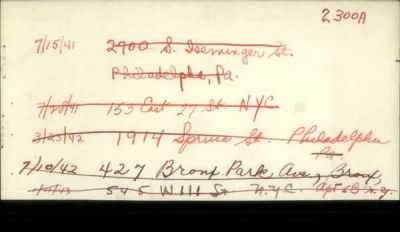 2300A
7/15/41 2900 S. Iseminger St.
Philadelphia, Pa.
7/28/41 153 East 27 St NYC
3/23/42 1914 Spruce St. Philadelphia
Pa.
7/10/42 427 Bronx Park Ave., Bronx,
545 W 111 St N.Y.C. Apt 5B N.Y.